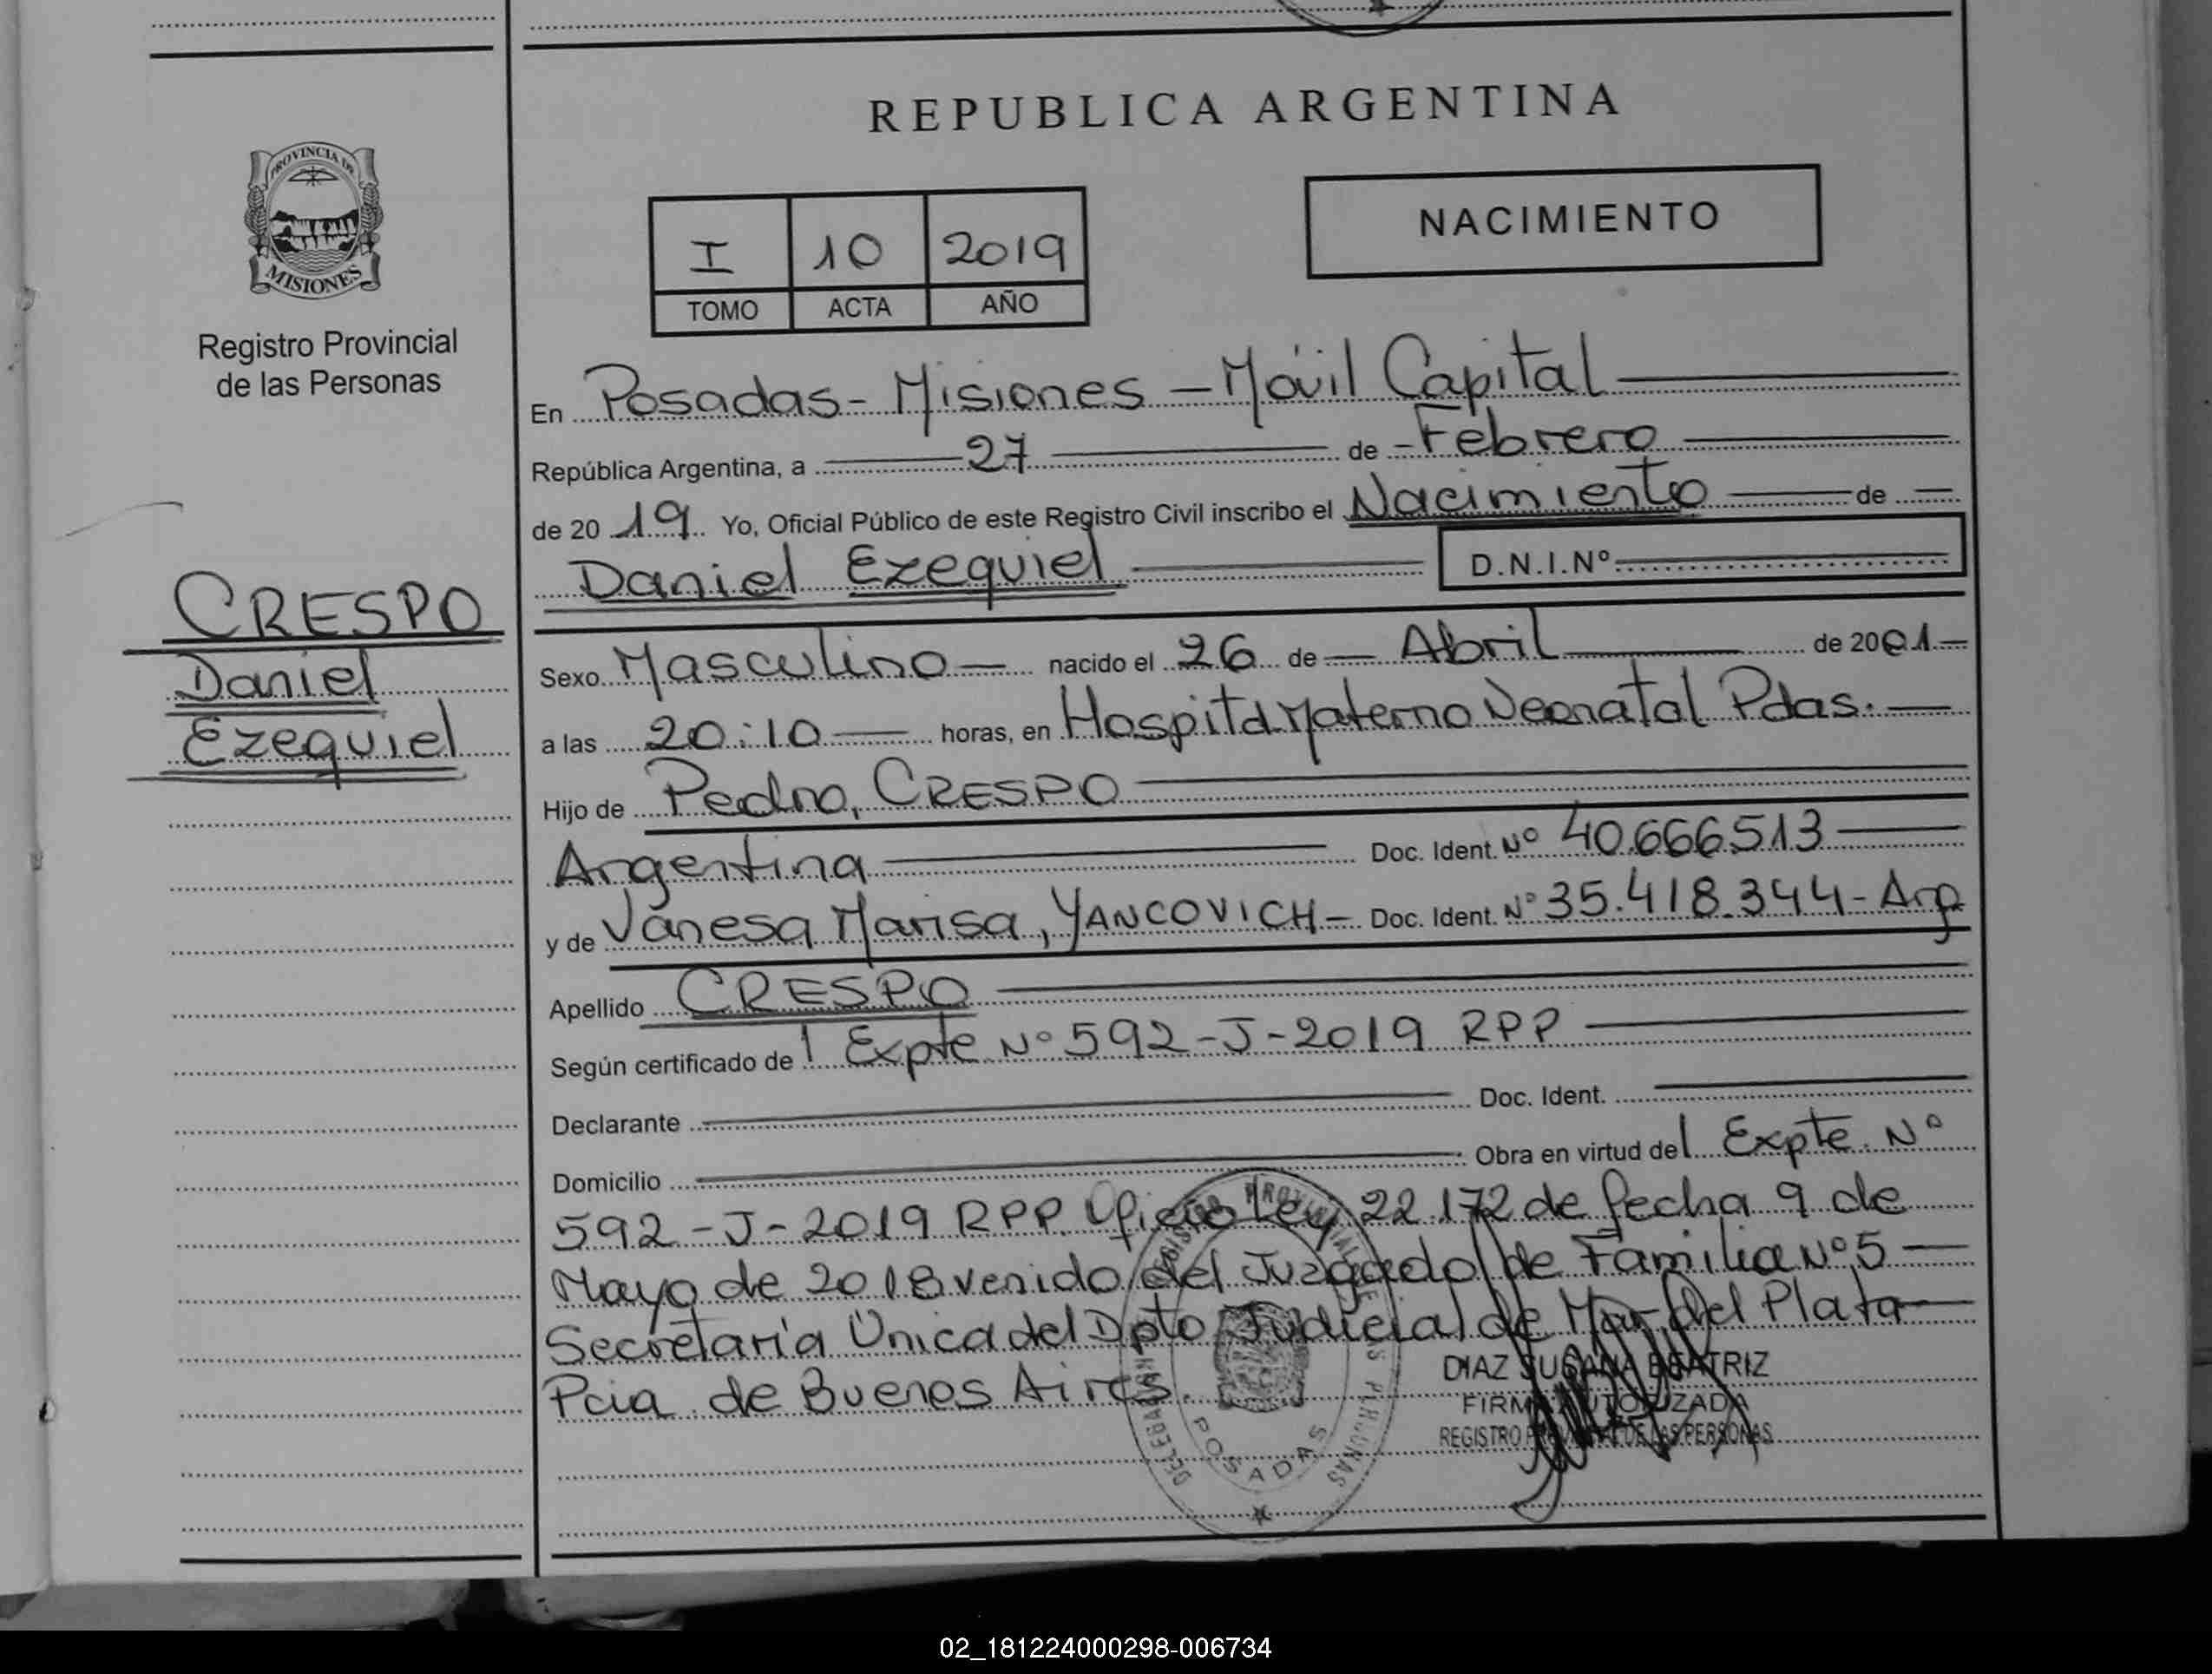 REPUBLICA ARGENTINA
PROVINCIA DE
MISIONES
Registro Provincial
de las Personas
NACIMIENTO
I 10 2019
TOMO ACTA AÑO
En Posadas - Misiones - Móvil Capital
República Argentina, a 27 de Febrero
de 20 19 Yo, Oficial Público de este Registro Civil inscribo el Nacimiento de
Daniel Ezequiel D.N.I.Nº
CRESPO
Daniel
Ezequiel
Sexo Masculino nacido el 26 de Abril de 2001
a las 20:10 horas, en Hospital Materno Neonatal Pdas.
Hijo de Pedro, CRESPO
Argentina Doc. Ident. Nº 40.666.513
y de Vanesa Marisa, YANCOVICH - Doc. Ident. Nº 35.418.344 - Arg
Apellido CRESPO
Según certificado de l Expte Nº 592-J-2019 RPP
Declarante Doc. Ident.
Domicilio Obra en virtud del Expte. Nº
592-J-2019 RPP Oficio Ley 22.172 de fecha 9 de
Mayo de 2018 venido del Juzgado de Familia Nº 5
Secretaría Única del Dpto Judicial de Mar del Plata
Pcia. de Buenos Aires.
DIAZ SUSANA BEATRIZ
FIRMA AUTORIZADA
REGISTRO PROVINCIAL DE LAS PERSONAS
POSADAS
02_181224000298-006734